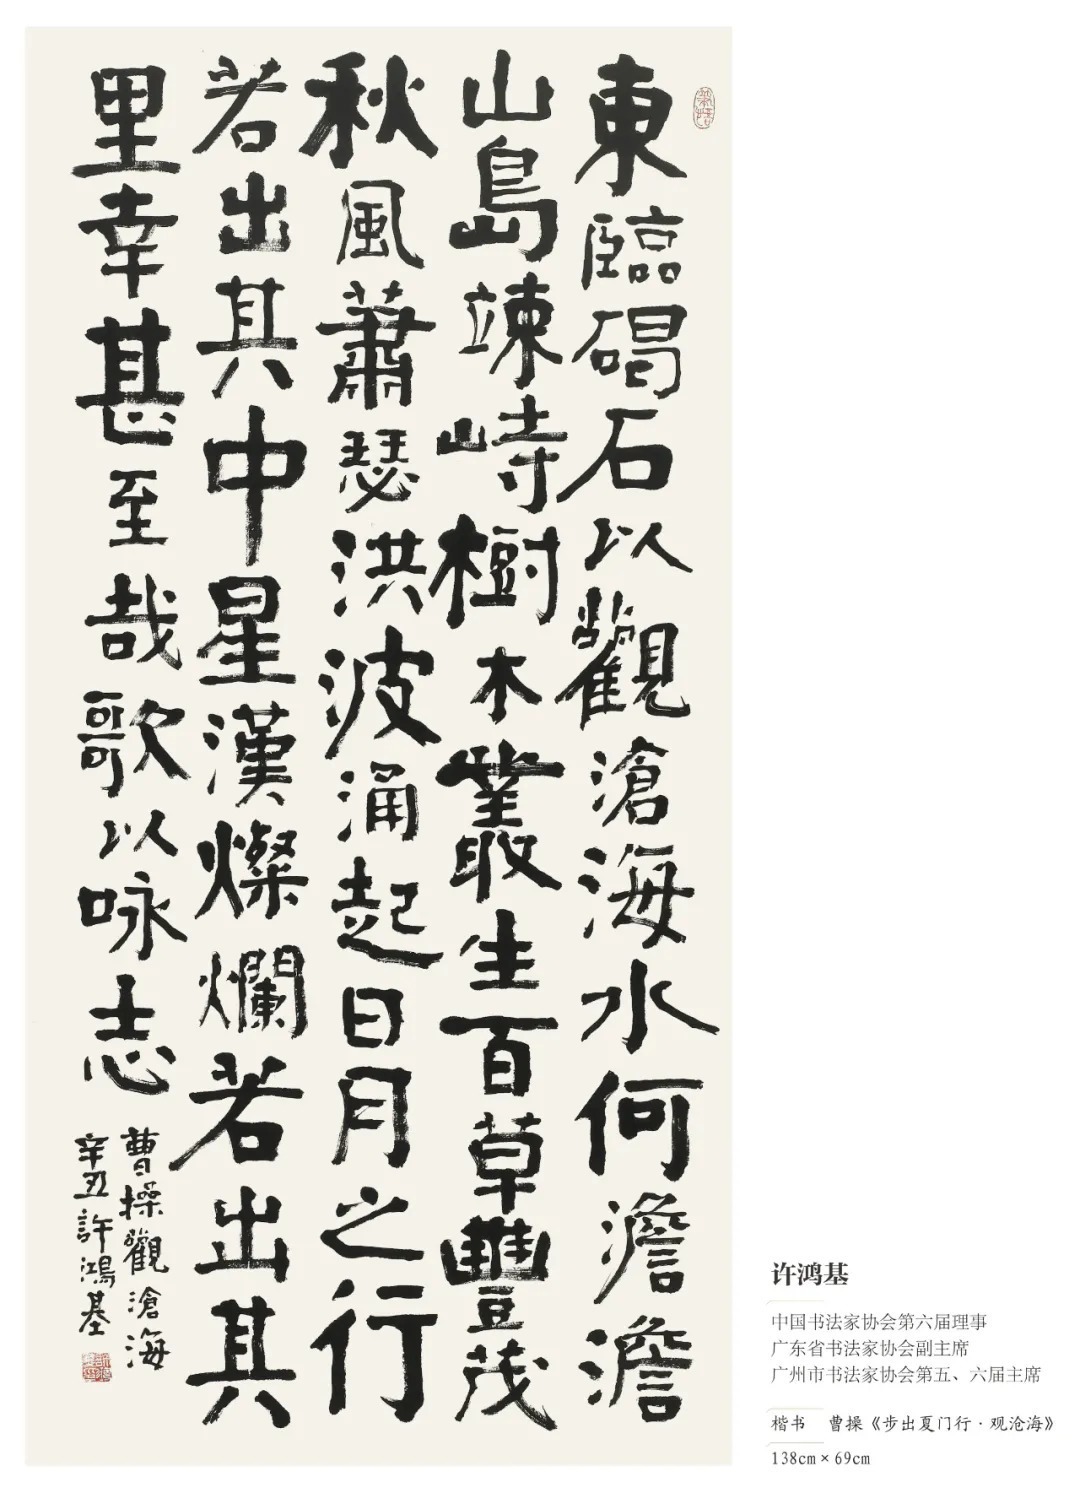 東臨碣石以觀滄海水何澹澹
山島竦峙樹木叢生百草豐茂
秋風蕭瑟洪波涌起日月之行
若出其中星漢燦爛若出其
里幸甚至哉歌以咏志
曹操觀滄海
辛丑許鴻基
许鸿基
中国书法家协会第六届理事
广东省书法家协会副主席
广州市书法家协会第五、六届主席
楷书 曹操《步出夏门行·观沧海》
138cm×69cm